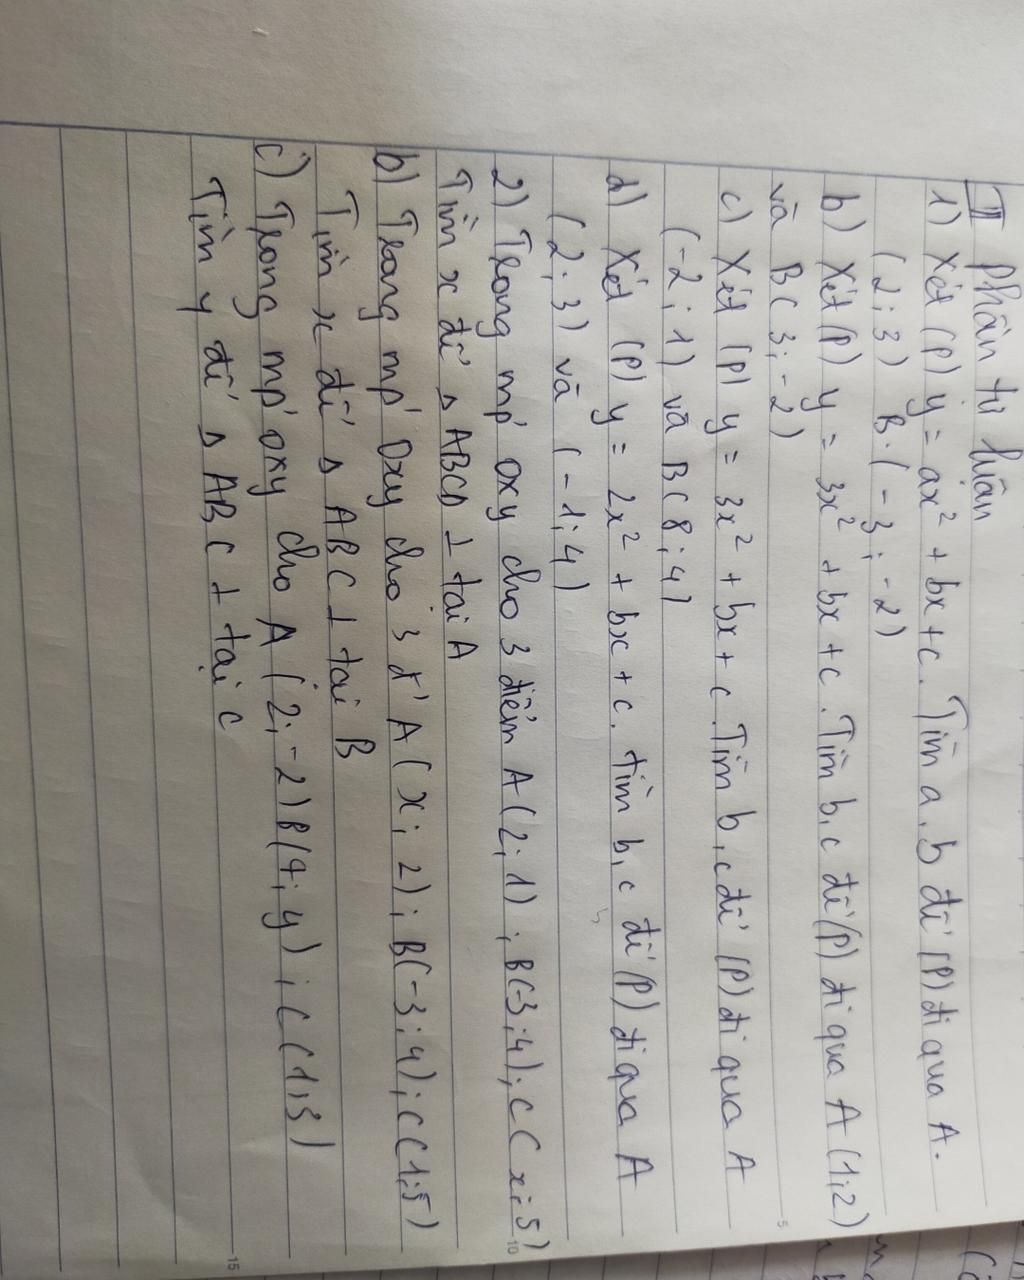 II Phần tự luận
1) Xét (P) y = ax² + bx + c. Tìm a, b để (P) đi qua A.
(2; 3) B. (-3; -2)
b) Xét (P) y = 3x² + bx + c. Tìm b, c để (P) đi qua A (1; 2)
và B (3; -2)
c) Xét (P) y = 3x² + bx + c. Tìm b, c để (P) đi qua A
(-2; 1) và B (8; 4)
d) Xét (P) y = 2x² + bx + c. tìm b, c để (P) đi qua A
(2; 3) và (-1; 4)
2) Trong mp' oxy cho 3 điểm A (2; 1); B(-3; 4); C (x; 5)
Tìm x để Δ ABCD ⊥ tại A
b) Trong mp' Oxy cho 3 đ' A (x; 2); B(-3; 4); C (1; 5)
Tìm x để Δ ABC ⊥ tại B
c) Trong mp' oxy cho A (2; -2) B(4; y); C (1; 3)
Tìm y để Δ ABC ⊥ tại C
5
10
15